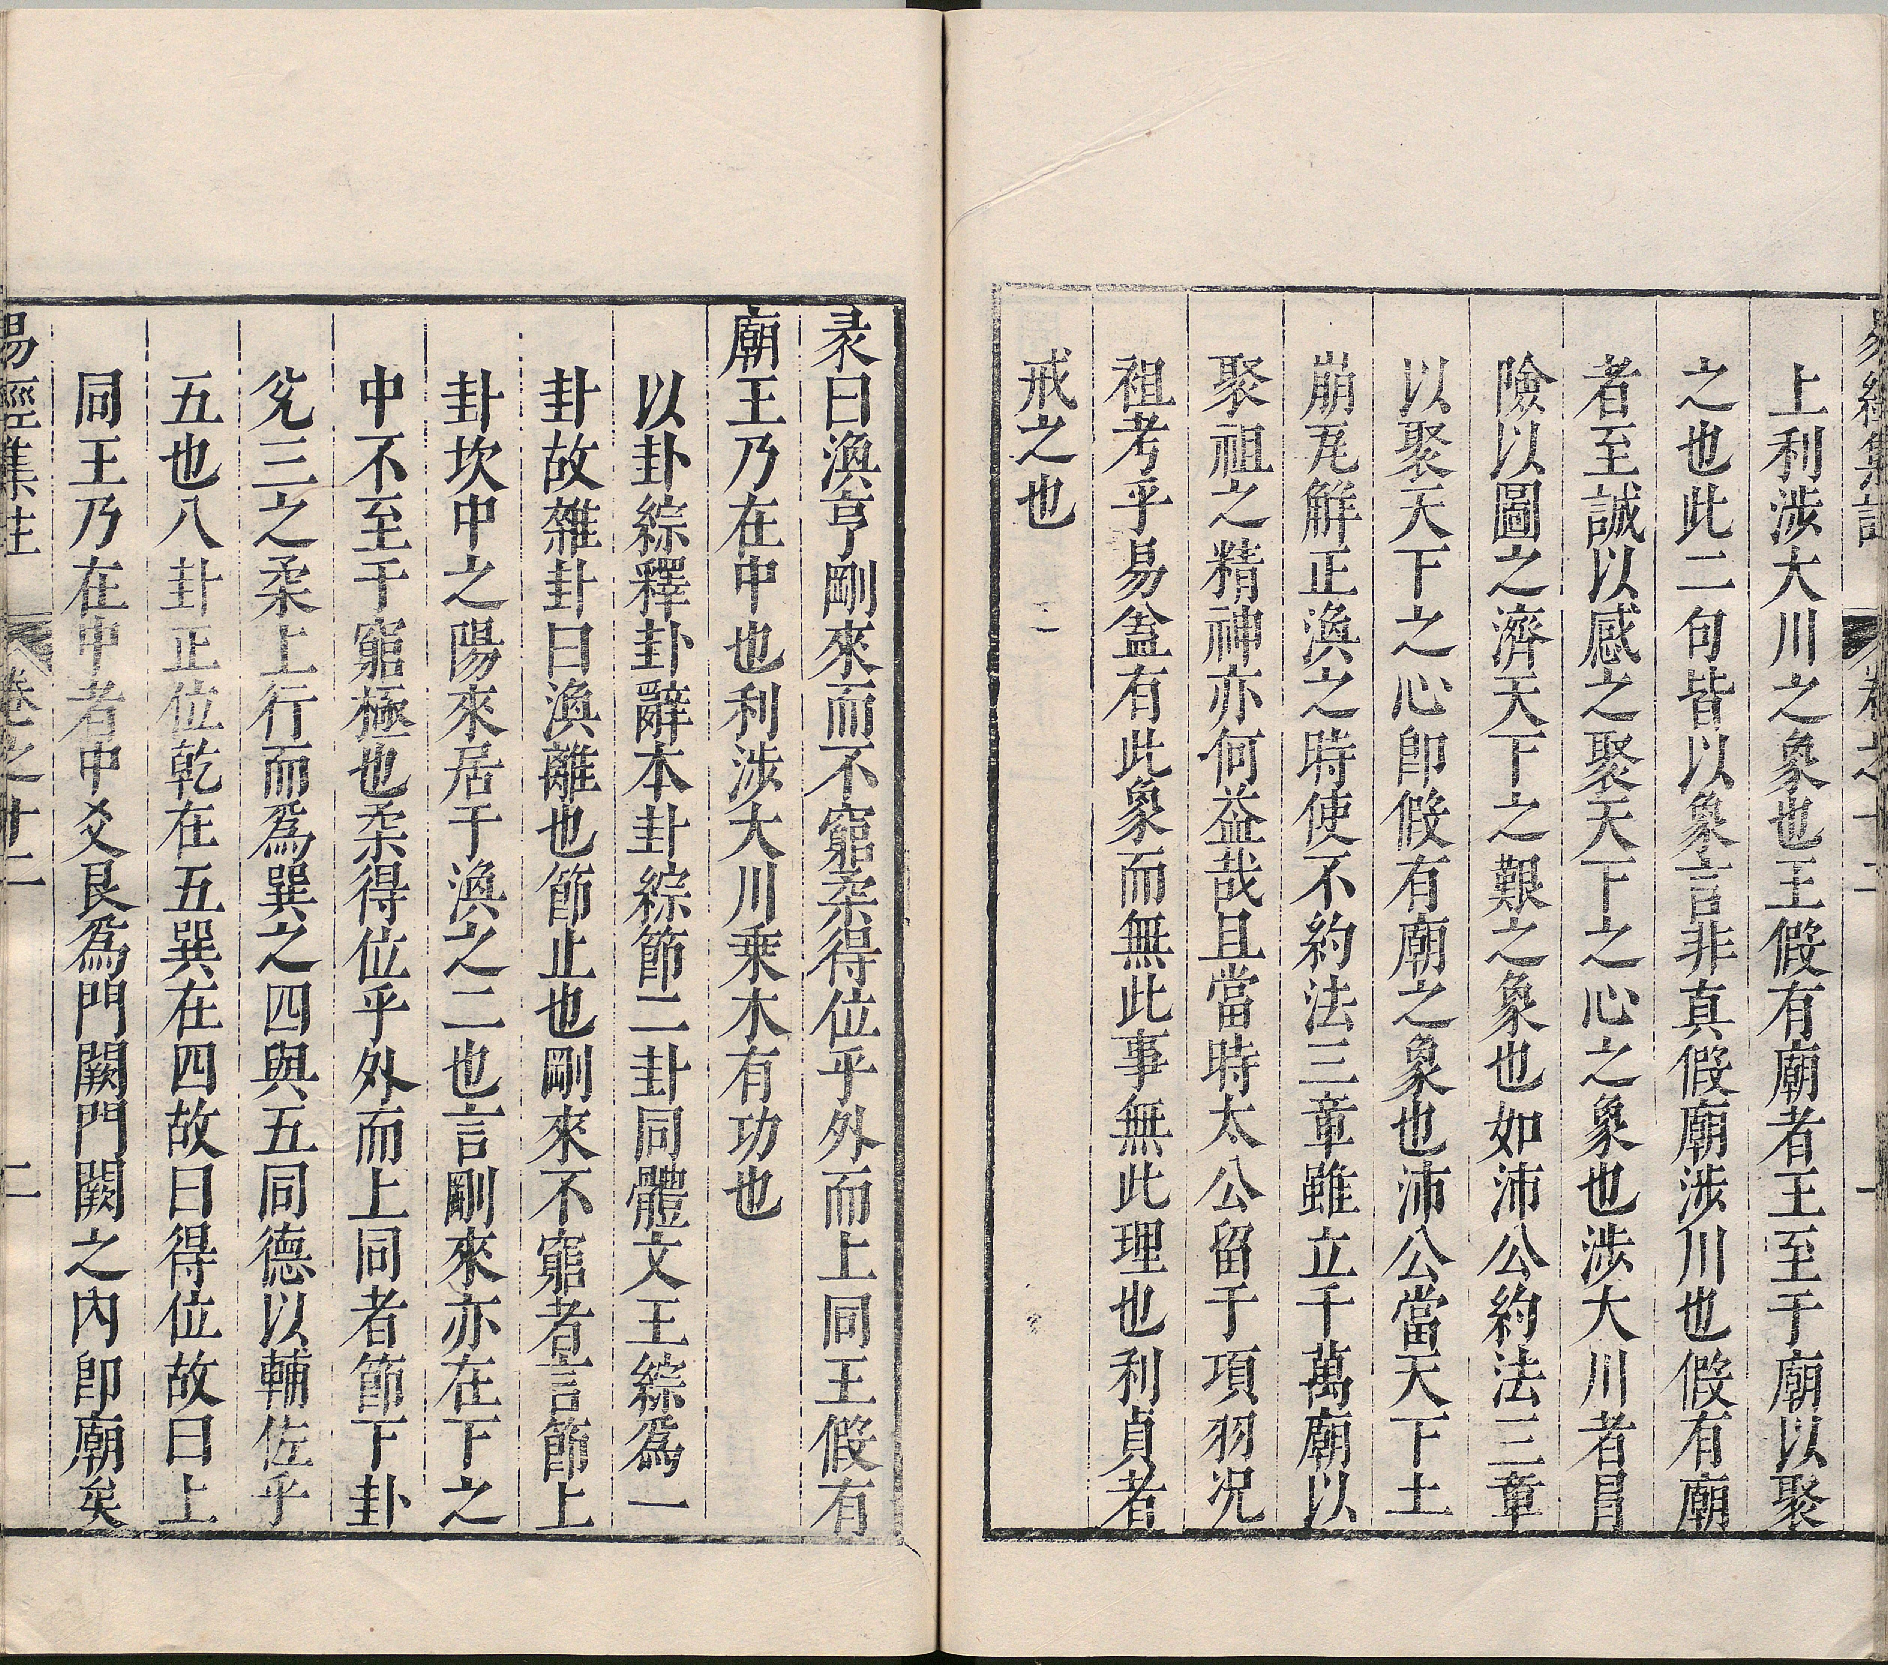 易經集註 卷之十二
上利涉大川之象也王假有廟者王至于廟以聚
之也此二句皆以象言非真假廟涉川也假有廟
者至誠以感之聚天下之心之象也涉大川者冒
險以圖之濟天下之艱之象也如沛公約法三章
以聚天下之心即假有廟之象也沛公當天下土
崩瓦解正渙之時使不約法三章雖立千萬廟以
聚祖之精神亦何益哉且當時太公留于項羽况
祖考乎易盖有此象而無此事無此理也利貞者
戒之也
彖曰渙亨剛來而不窮柔得位乎外而上同王假有
廟王乃在中也利涉大川乗木有功也
以卦綜釋卦辭本卦綜節二卦同體文王綜為一
卦故雜卦曰渙離也節止也剛來不窮者言節上
卦坎中之陽來居于渙之二也言剛來亦在下之
中不至于窮極也柔得位乎外而上同者節下卦
兊三之柔上行而為巽之四與五同德以輔佐乎
五也八卦正位乾在五巽在四故曰得位故曰上
同王乃在中者中爻艮為門闕門闕之內即廟矣
易經集註 卷之十二 二